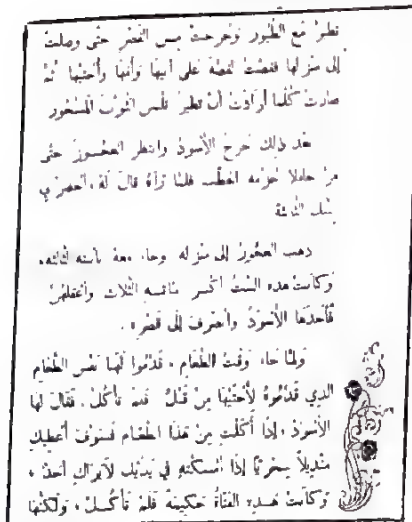 تطيرُ مَعَ الطُّيُور وَخَرجتْ مِنَ القَصْرِ حَتَّى وصلتْ
إلى منْزِلها فَقَصَّتْ القِصَّةَ عَلَى أَبيهَا وَأُمِّهَا وَأُخْتَيْها ثُمَّ
صَارتْ كُلَّما أَرَادَتْ أَنْ تَطيرَ تَلْبس الثَّوْبَ المَسْحُور
بَعْدَ ذلِك خَرجَ الأَسْودُ وانتظر العَجُوزَ حَتَّى
مَرَّ حَامِلا حُزْمة الحَطَب فَلمَّا رَآهُ قالَ لَهُ ، أَحضِرْ لِي
بِنتَك الثَّالِثَة
ذهب العجُوزُ إلى منْزِله وجاءَ معهُ بابنتِه الثَّالِثَة،
وَكَانتْ هذِه البِنْتُ أَكْبر بناتِه الثَّلاث وأَعْقلَهُنَّ
فَأَخَذَهَا الأَسْوَدُ وانْصرفَ إلَى قَصْرِهِ .
وَلمَّا جَاءَ وَقْتُ الطَّعَامِ ، قَدَّمُوا لَهَا نَفْس الطَّعَامِ
الذِي قَدَّمُوهُ لأُخْتَيْهَا مِنْ قَبْلُ فَلمْ تأكُلْ. فَقَالَ لَهَا
الأَسْودُ ، إذَا أَكَلْتِ مِنْ هَذَا الطَعَام فَسَوْفَ أُعْطِيكِ
مِنْدِيلاً سِحْرِيًّا إذَا أَمْسكْتِهِ فِي يَدَيْكِ لاَيَرَاكِ أَحدٌ ،
وَكَانَتْ هَذِهِ الفَتَاةُ حَكِيمَةً فَلَمْ تَأْكُلْ ، وَلكنَّهَا